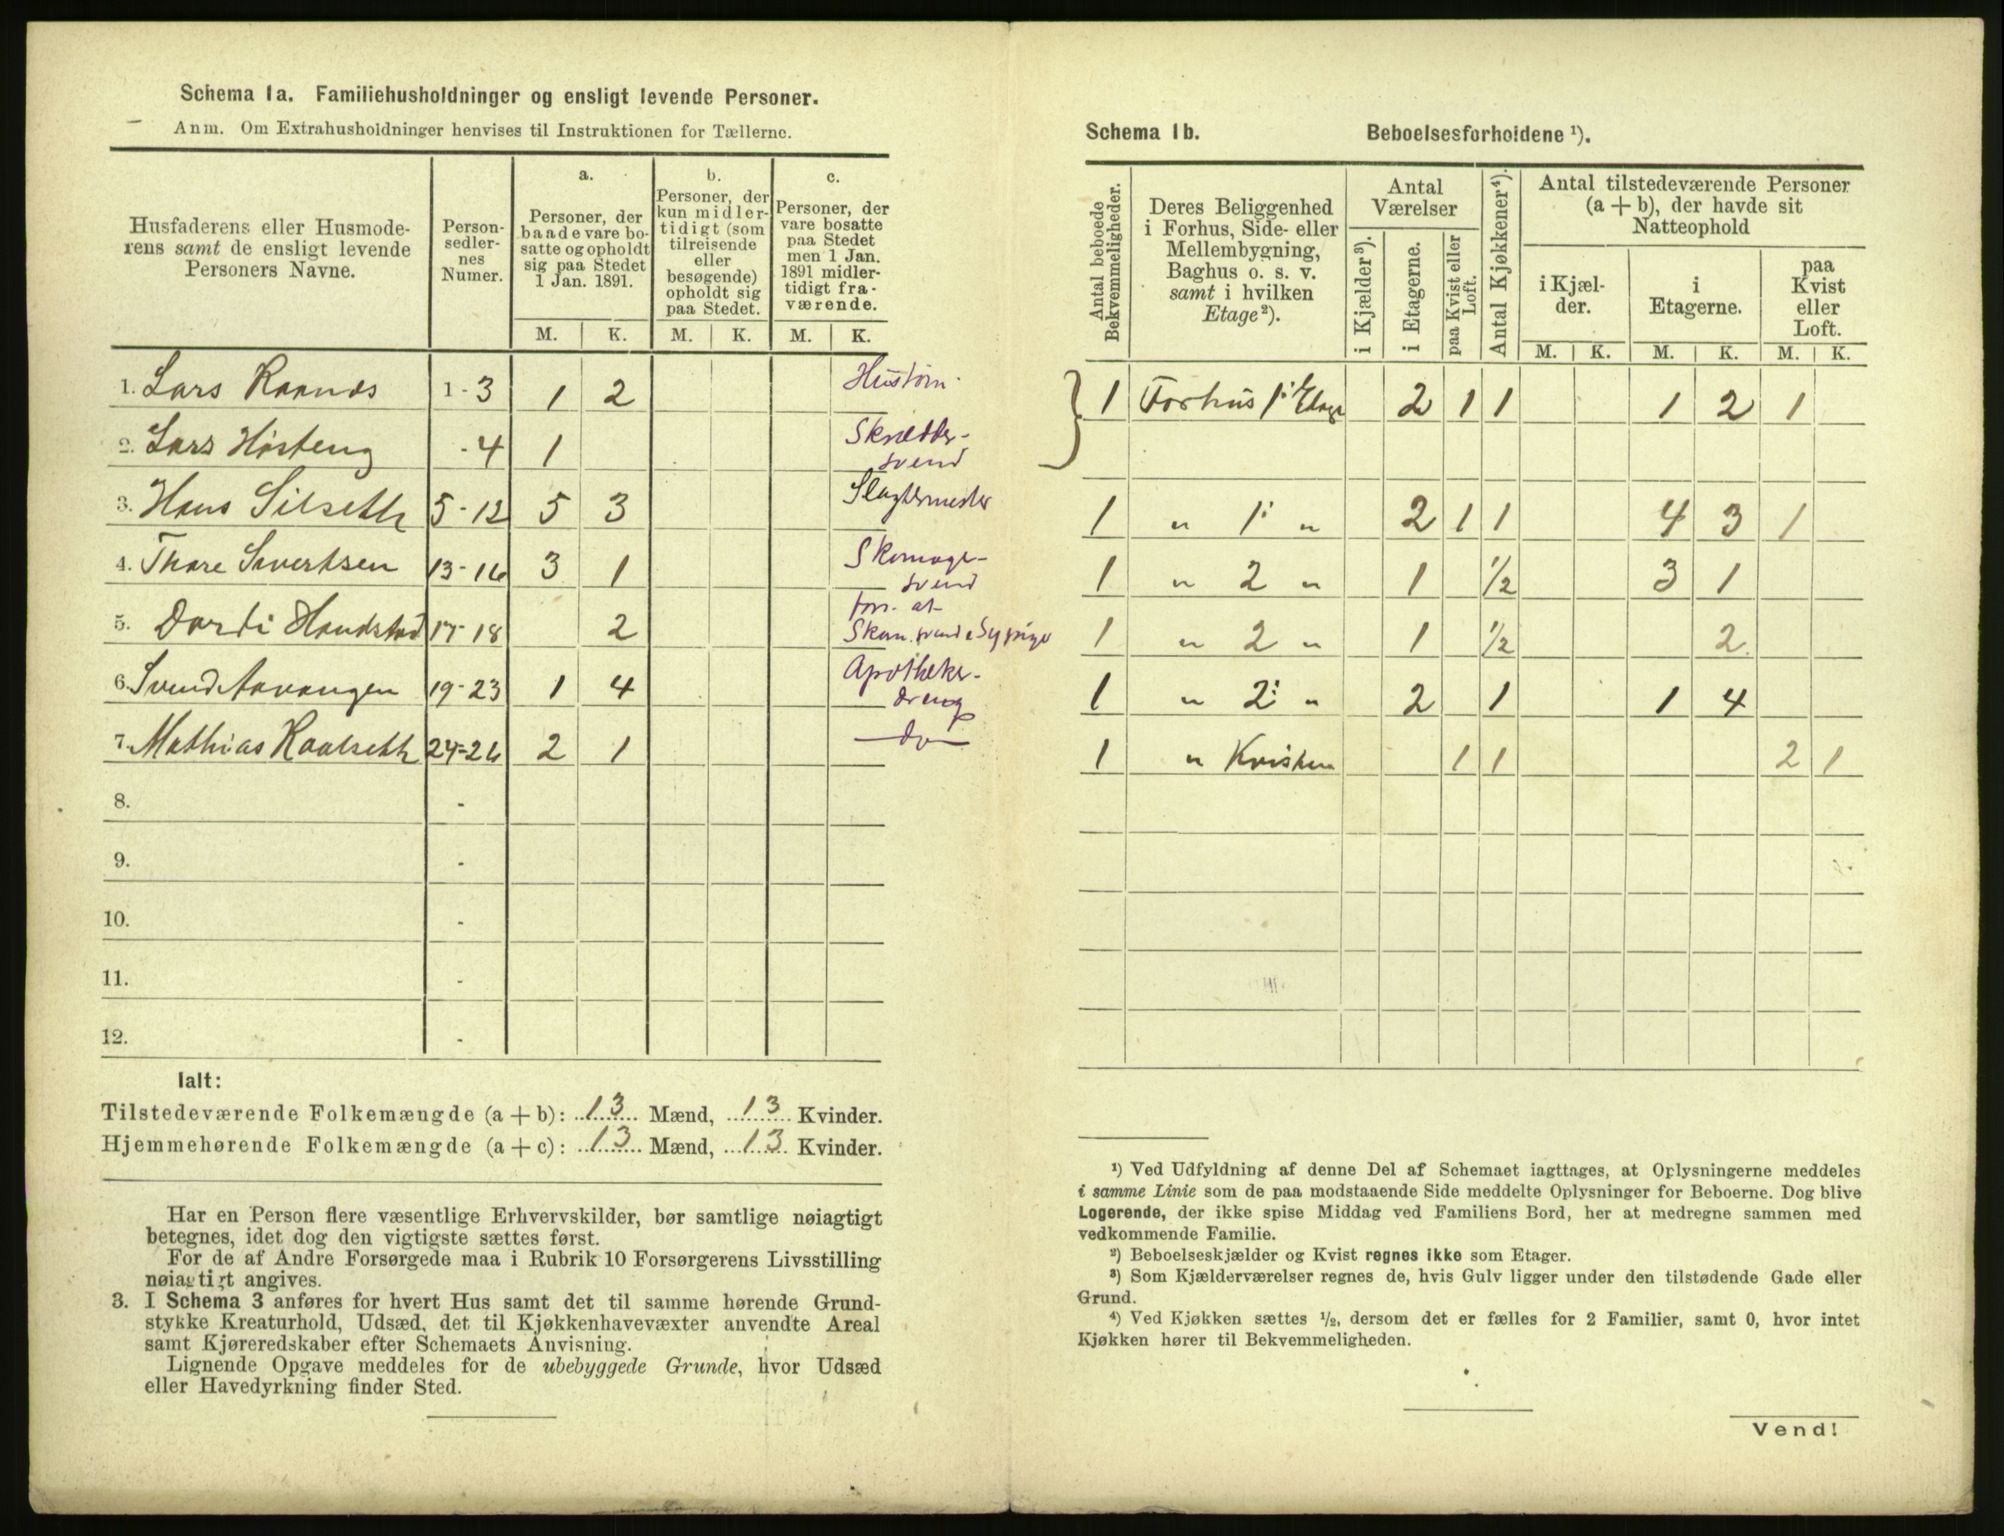 Schema 1a. Familiehusholdninger og ensligt levende Personer.
Anm. Om Extrahusholdninger henvises til Instruktionen for Tællerne.
Husfaderens eller Husmoderens samt de ensligt levende Personers Navne.
Personsedlernes Numer.
a. Personer, der baade vare bosatte og opholdt sig paa Stedet 1 Jan. 1891.
b. Personer, der kun midlertidigt (som tilreisende eller besøgende) opholdt sig paa Stedet.
c. Personer, der vare bosatte paa Stedet men 1 Jan. 1891 midlertidigt fraværende.
M. K. M. K. M. K.
1. Lars Raanes 1-3 1 2 Hustøm.
2. Lars Høsteng -4 1 Skrædder-
svend
3. Hans Silseth 5-12 5 3 Slagtermester
4. Thore Sivertsen 13-16 3 1 Skomager-
svend
5. Dordi Handstad 17-18 2 fors. at
Skom. svend & Sypige
6. Svend Aavangen 19-23 1 4 Apotheker-
dreng
7. Mathias Raalseth 24-26 2 1 do
8. -
9. -
10. -
11. -
12. -
Ialt:
Tilstedeværende Folkemængde (a + b): 13 Mænd, 13 Kvinder.
Hjemmehørende Folkemængde (a + c): 13 Mænd, 13 Kvinder.
Har en Person flere væsentlige Erhvervskilder, bør samtlige nøiagtigt
betegnes, idet dog den vigtigste sættes først.
For de af Andre Forsørgede maa i Rubrik 10 Forsørgerens Livsstilling
nøiagtigt angives.
3. I Schema 3 anføres for hvert Hus samt det til samme hørende Grund-
stykke Kreaturhold, Udsæd, det til Kjøkkenhavevæxter anvendte Areal
samt Kjøreredskaber efter Schemaets Anvisning.
Lignende Opgave meddeles for de ubebyggede Grunde, hvor Udsæd
eller Havedyrkning finder Sted.
Schema 1b. Beboelsesforholdene ¹).
Antal beboede Bekvemmeligheder.
Deres Beliggenhed i Forhus, Side- eller Mellembygning, Baghus o. s. v. samt i hvilken Etage²).
Antal Værelser
i Kjælder³). i Etagerne. paa Kvist eller Loft.
Antal Kjøkkener⁴).
Antal tilstedeværende Personer (a + b), der havde sit Natteophold
i Kjælder. i Etagerne. paa Kvist eller Loft.
M. K. M. K. M. K.
1 Forhus 1: Etage 2 1 1 1 2 1
1 " 1: " 2 1 1 4 3 1
1 " 2 " 1 1/2 3 1
1 " 2 " 1 1/2 2
1 " 2: " 2 1 1 4
1 " Kvisten 1 1 2 1
¹) Ved Udfyldning af denne Del af Schemaet iagttages, at Oplysningerne meddeles
i samme Linie som de paa modstaaende Side meddelte Oplysninger for Beboerne. Dog blive
Logerende, der ikke spise Middag ved Familiens Bord, her at medregne sammen med
vedkommende Familie.
²) Beboelseskjælder og Kvist regnes ikke som Etager.
³) Som Kjælderværelser regnes de, hvis Gulv ligger under den tilstødende Gade eller
Grund.
⁴) Ved Kjøkken sættes ½, dersom det er fælles for 2 Familier, samt 0, hvor intet
Kjøkken hører til Bekvemmeligheden.
Vend!